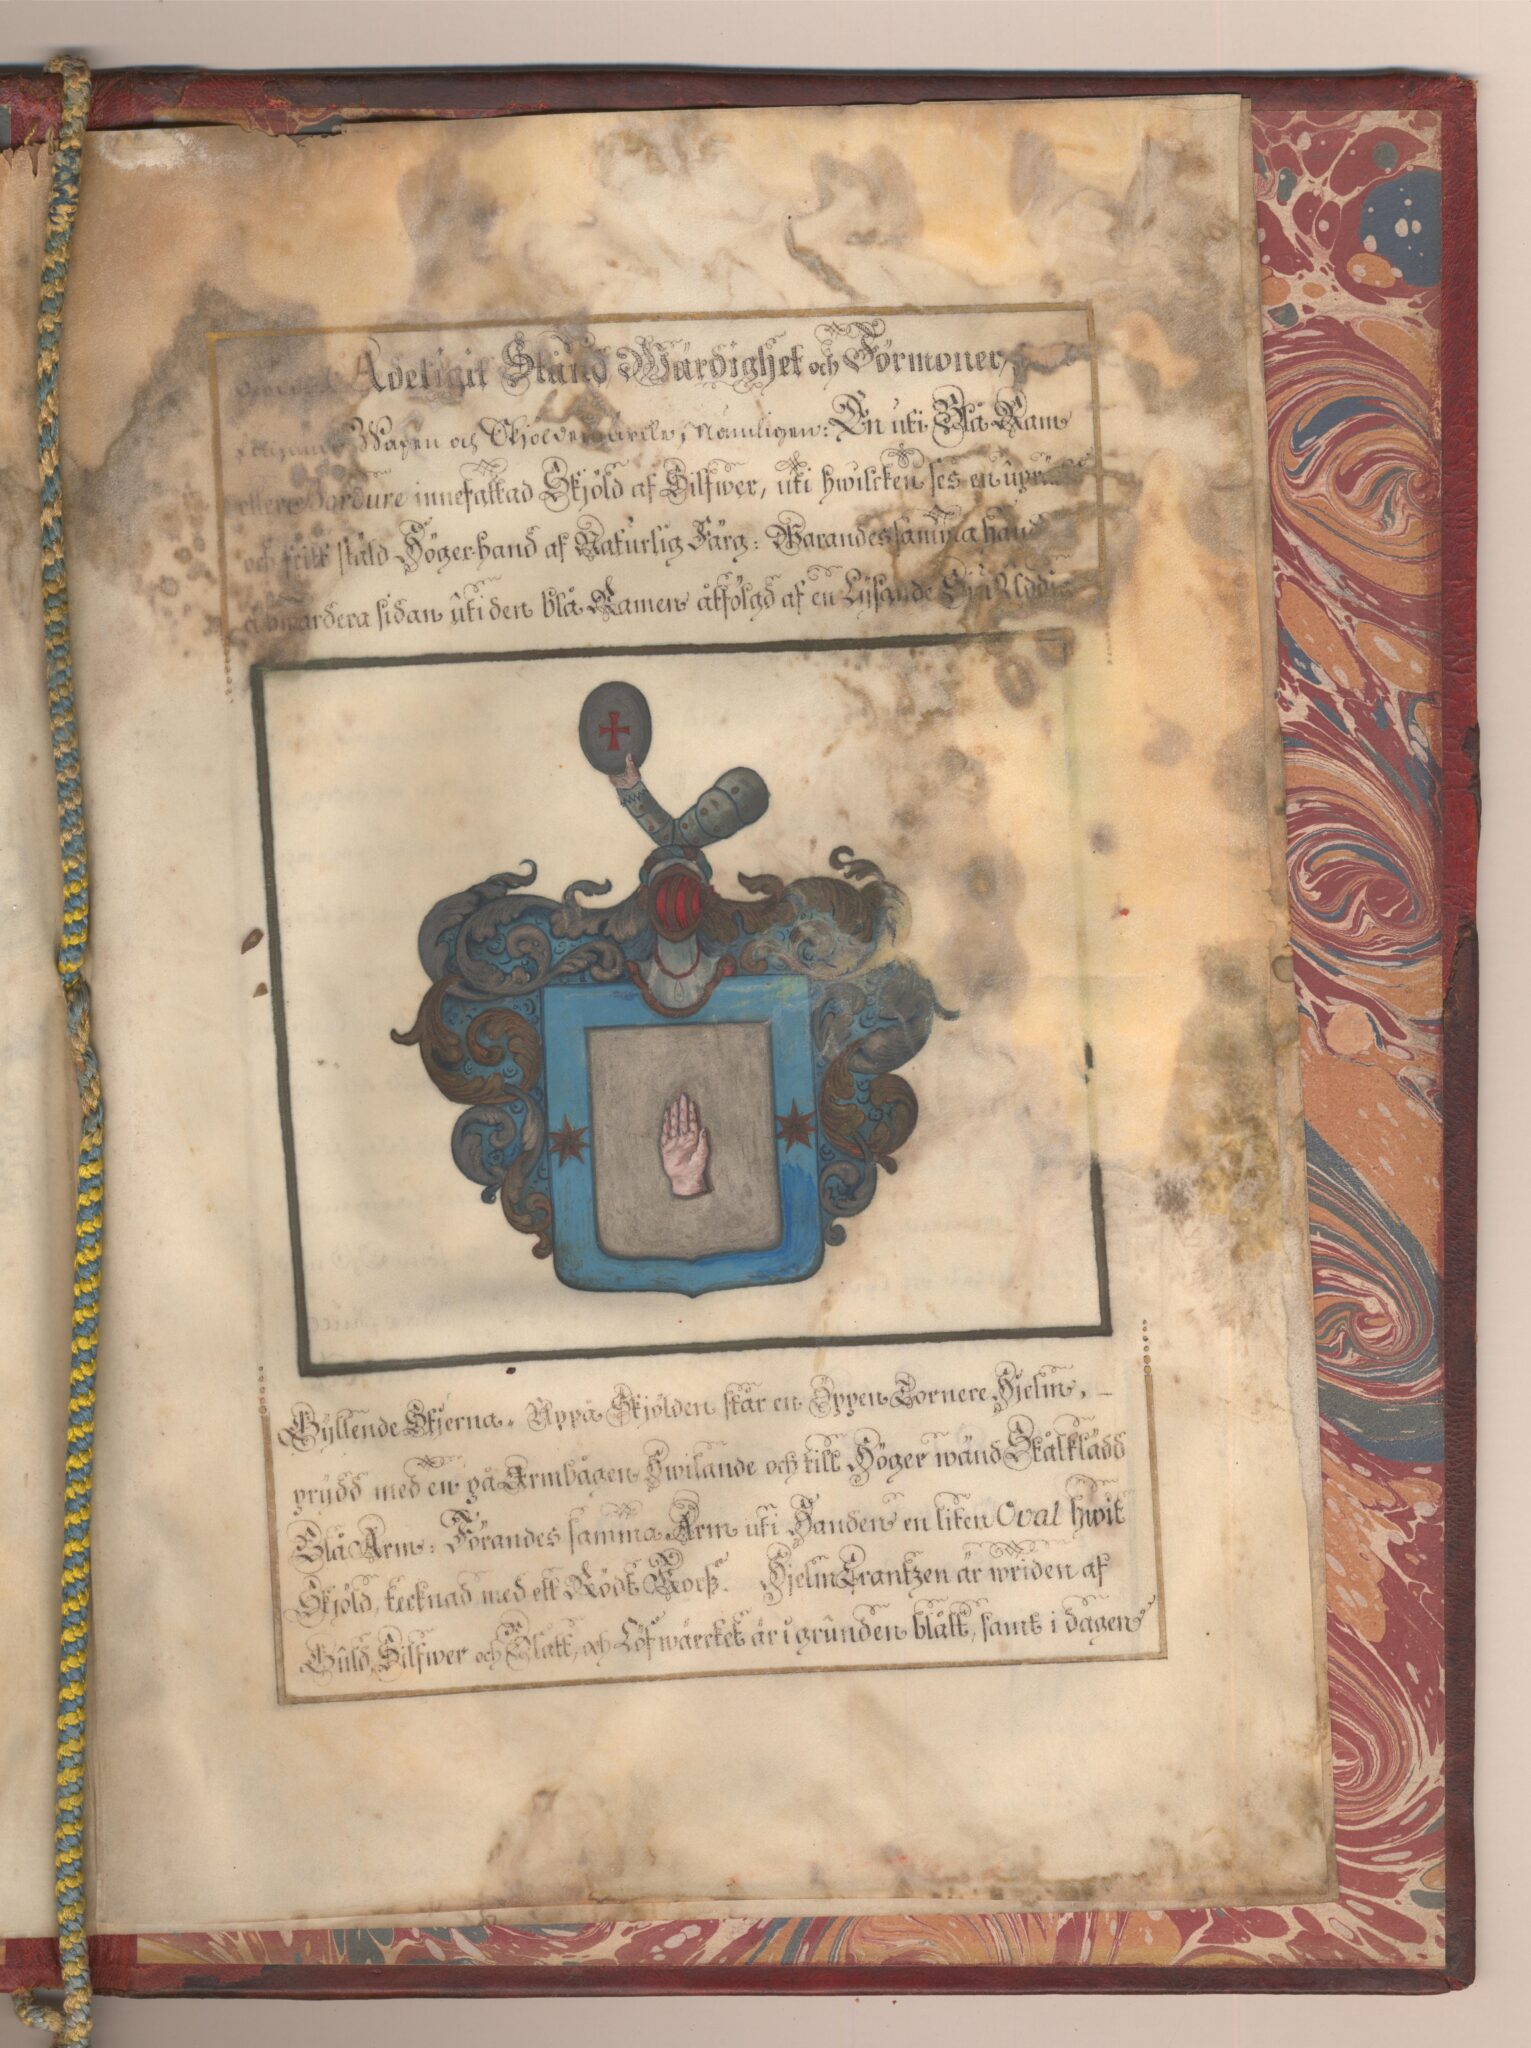 Adeligit Stånd Wärdighet och Förmoner,
Wapen och Skjöldemärcke, Nämligen: En uti Blå Ram
eller Bordure innefattad Skjöld af Silfwer, uti hwilcken ses en
och fritt stäld Höger-hand af Naturlig Färg: Warandes samma hand
å hwardera sidan ûti den blå Ramen åtföljd af en Lysande Siu Uddig
Gyllende Skjerna. Uppå Skjölden står en Öppen Tornere Hjelm,
prÿdd med en på Armbågen Hwilande och till Höger wänd Stålklädd
Blå Arm: Förandes samma Arm uti Handen en liten Oval hwit
Skjöld, tecknad med ett Rödt Korß. HjelmCrantzen är wriden af
Gûld, Silfwer och Blått, och Löfwärcket är i grûnden blått, samt i dagen